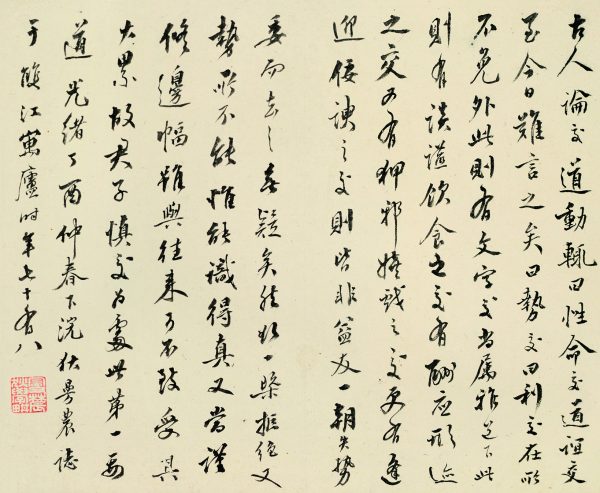 古人論交道動輒曰性命交道誼交
至今日難言之矣曰勢交曰利交在所
不免外此則有文字交尚屬雅道下此
則有談讌飲食之交有酬應形迹
之交又有狎邪嬉戲之交更有逢
迎佞諛之交則皆非益友一朝失勢
委而去之無疑矣然欲一槩拒絕又
勢所不能惟能識得真又當謹
修邊幅雖與往來可不致受其
大累故君子慎交為處世第一要
道光緒丁酉仲春下浣粵農誌
于雙江寓廬時年七十有八